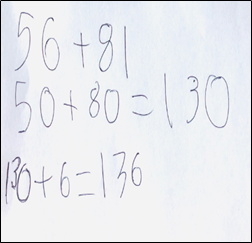 56+81
50+80=130
130+6=136